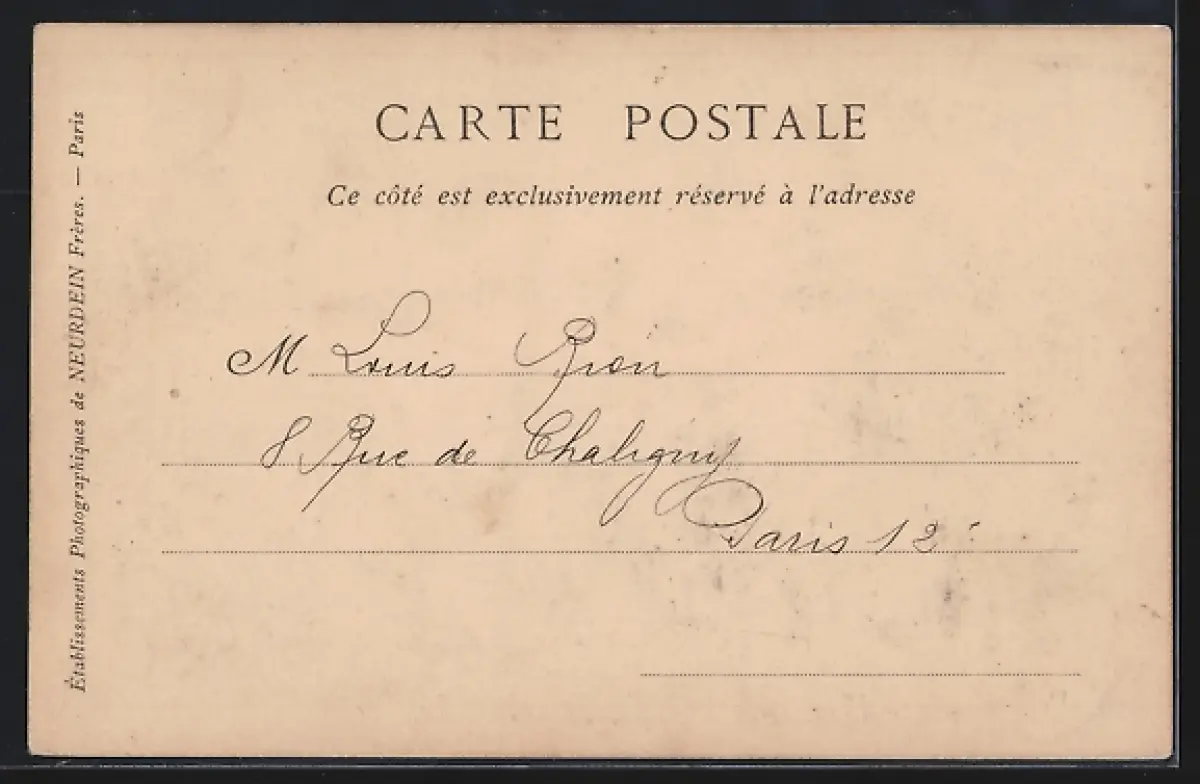 CARTE POSTALE
Ce côté est exclusivement réservé à l'adresse
M Louis Rion
8 Rue de Chaligny
Paris 12e
Établissements Photographiques de NEURDEIN Frères. — Paris